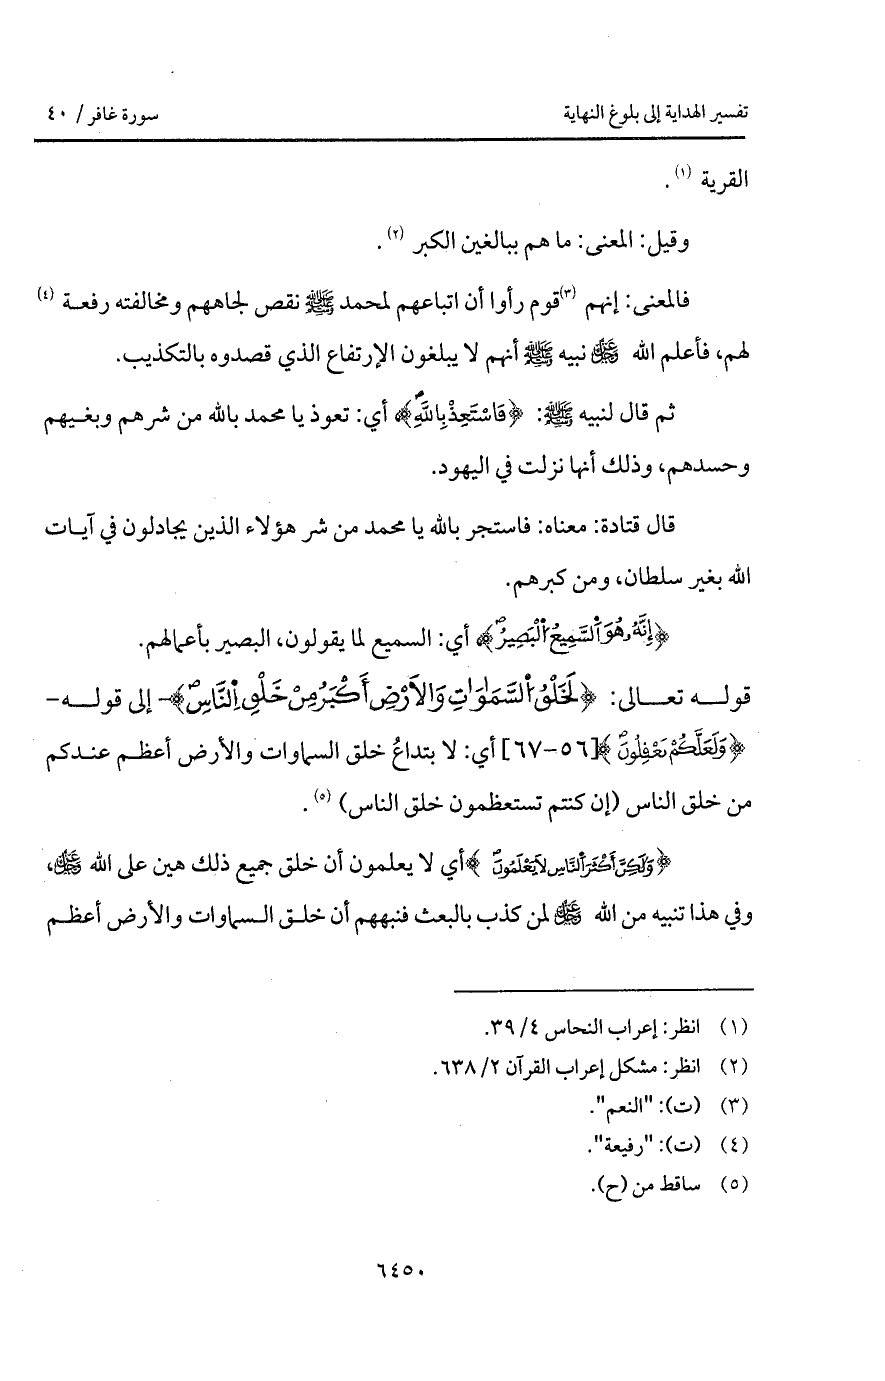 تفسير الهداية إلى بلوغ النهاية سورة غافر / ٤٠
القرية (١).
وقيل: المعنى: ما هم ببالغين الكبر (٢).
فالمعنى: إنهم (٣)قوم رأوا أن اتباعهم لمحمد ﷺ نقص لجاههم ومخالفته رفعة (٤)
لهم، فأعلم الله ﷿ نبيه ﷺ أنهم لا يبلغون الإرتفاع الذي قصدوه بالتكذيب.
ثم قال لنبيه ﷺ: ﴿فَاسْتَعِذْ بِاللَّهِ﴾ أي: تعوذ يا محمد بالله من شرهم وبغيهم
وحسدهم، وذلك أنها نزلت في اليهود.
قال قتادة: معناه: فاستجر بالله يا محمد من شر هؤلاء الذين يجادلون في آيات
الله بغير سلطان، ومن كبرهم.
﴿إِنَّهُ هُوَ ٱلسَّمِيعُ ٱلْبَصِيرُ﴾ أي: السميع لما يقولون، البصير بأعمالهم.
قوله تعالى: ﴿لَخَلْقُ ٱلسَّمَٰوَٰتِ وَالَارْضِ أَكْبَرُ مِنْ خَلْقِ ٱلنَّاسِ﴾- إلى قوله-
﴿وَلَعَلَّكُمْ تَعْقِلُونَ﴾[٥٦-٦٧] أي: لا بتداعُ خلق السماوات والأرض أعظم عندكم
من خلق الناس (إن كنتم تستعظمون خلق الناس) (٥).
﴿وَلَٰكِنَّ أَكْثَرَ ٱلنَّاسِ لاَ يَعْلَمُونَ﴾أي لا يعلمون أن خلق جميع ذلك هين على الله ﷿،
وفي هذا تنبيه من الله ﷿ لمن كذب بالبعث فنبههم أن خلق السماوات والأرض أعظم
(١) انظر: إعراب النحاس ٤/ ٣٩.
(٢) انظر: مشكل إعراب القرآن ٢/ ٦٣٨.
(٣) (ت): "النعم".
(٤) (ت): "رفيعة".
(٥) ساقط من (ح).
٦٤٥٠